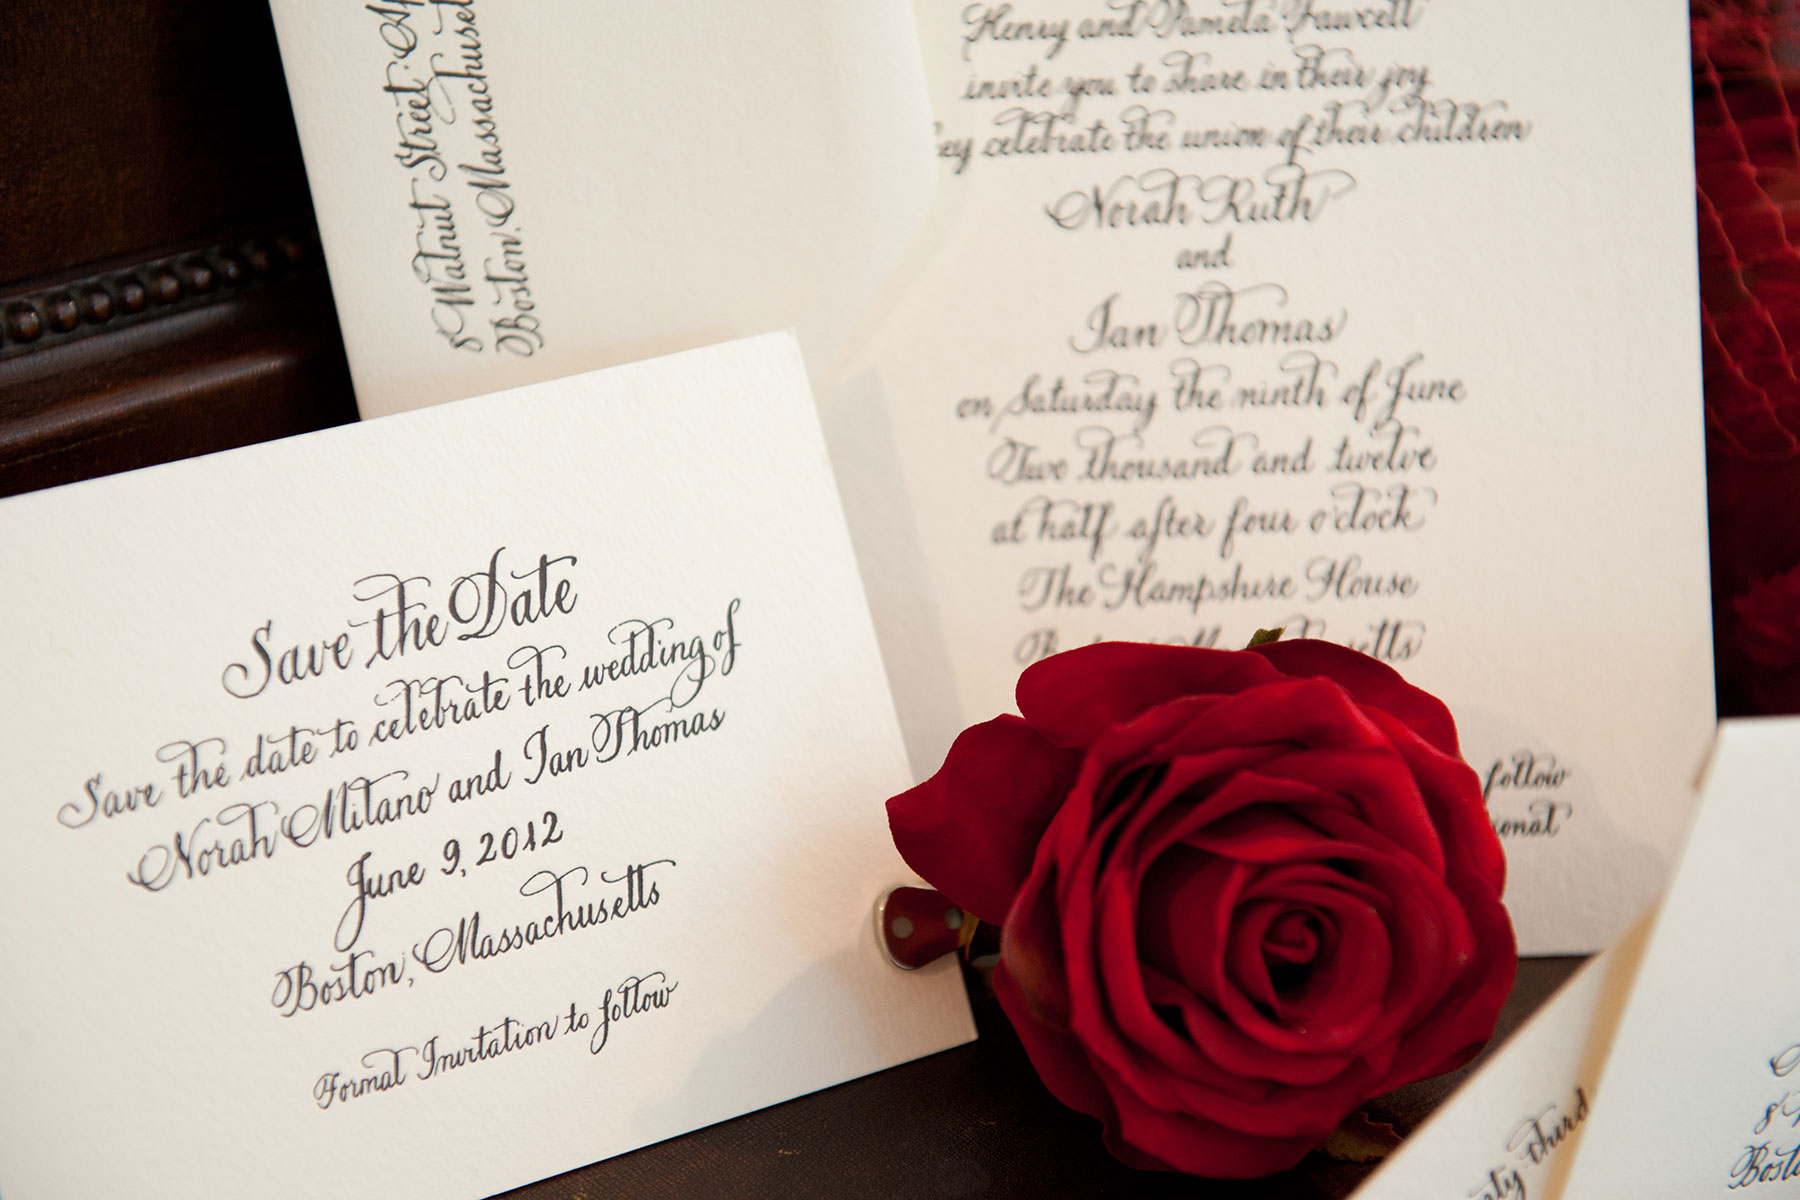 8 Walnut Street
Boston, Massachuset
Henry and Pamela Fawcett
invite you to share in their joy
ey celebrate the union of their children
Norah Ruth
and
Ian Thomas
on Saturday the ninth of June
Two thousand and twelve
at half after four o'clock
The Hampshire House
follow
ional
Save the Date
Save the date to celebrate the wedding of
Norah Milano and Ian Thomas
June 9, 2012
Boston, Massachusetts
Formal Invitation to follow
ty third
8
Bost